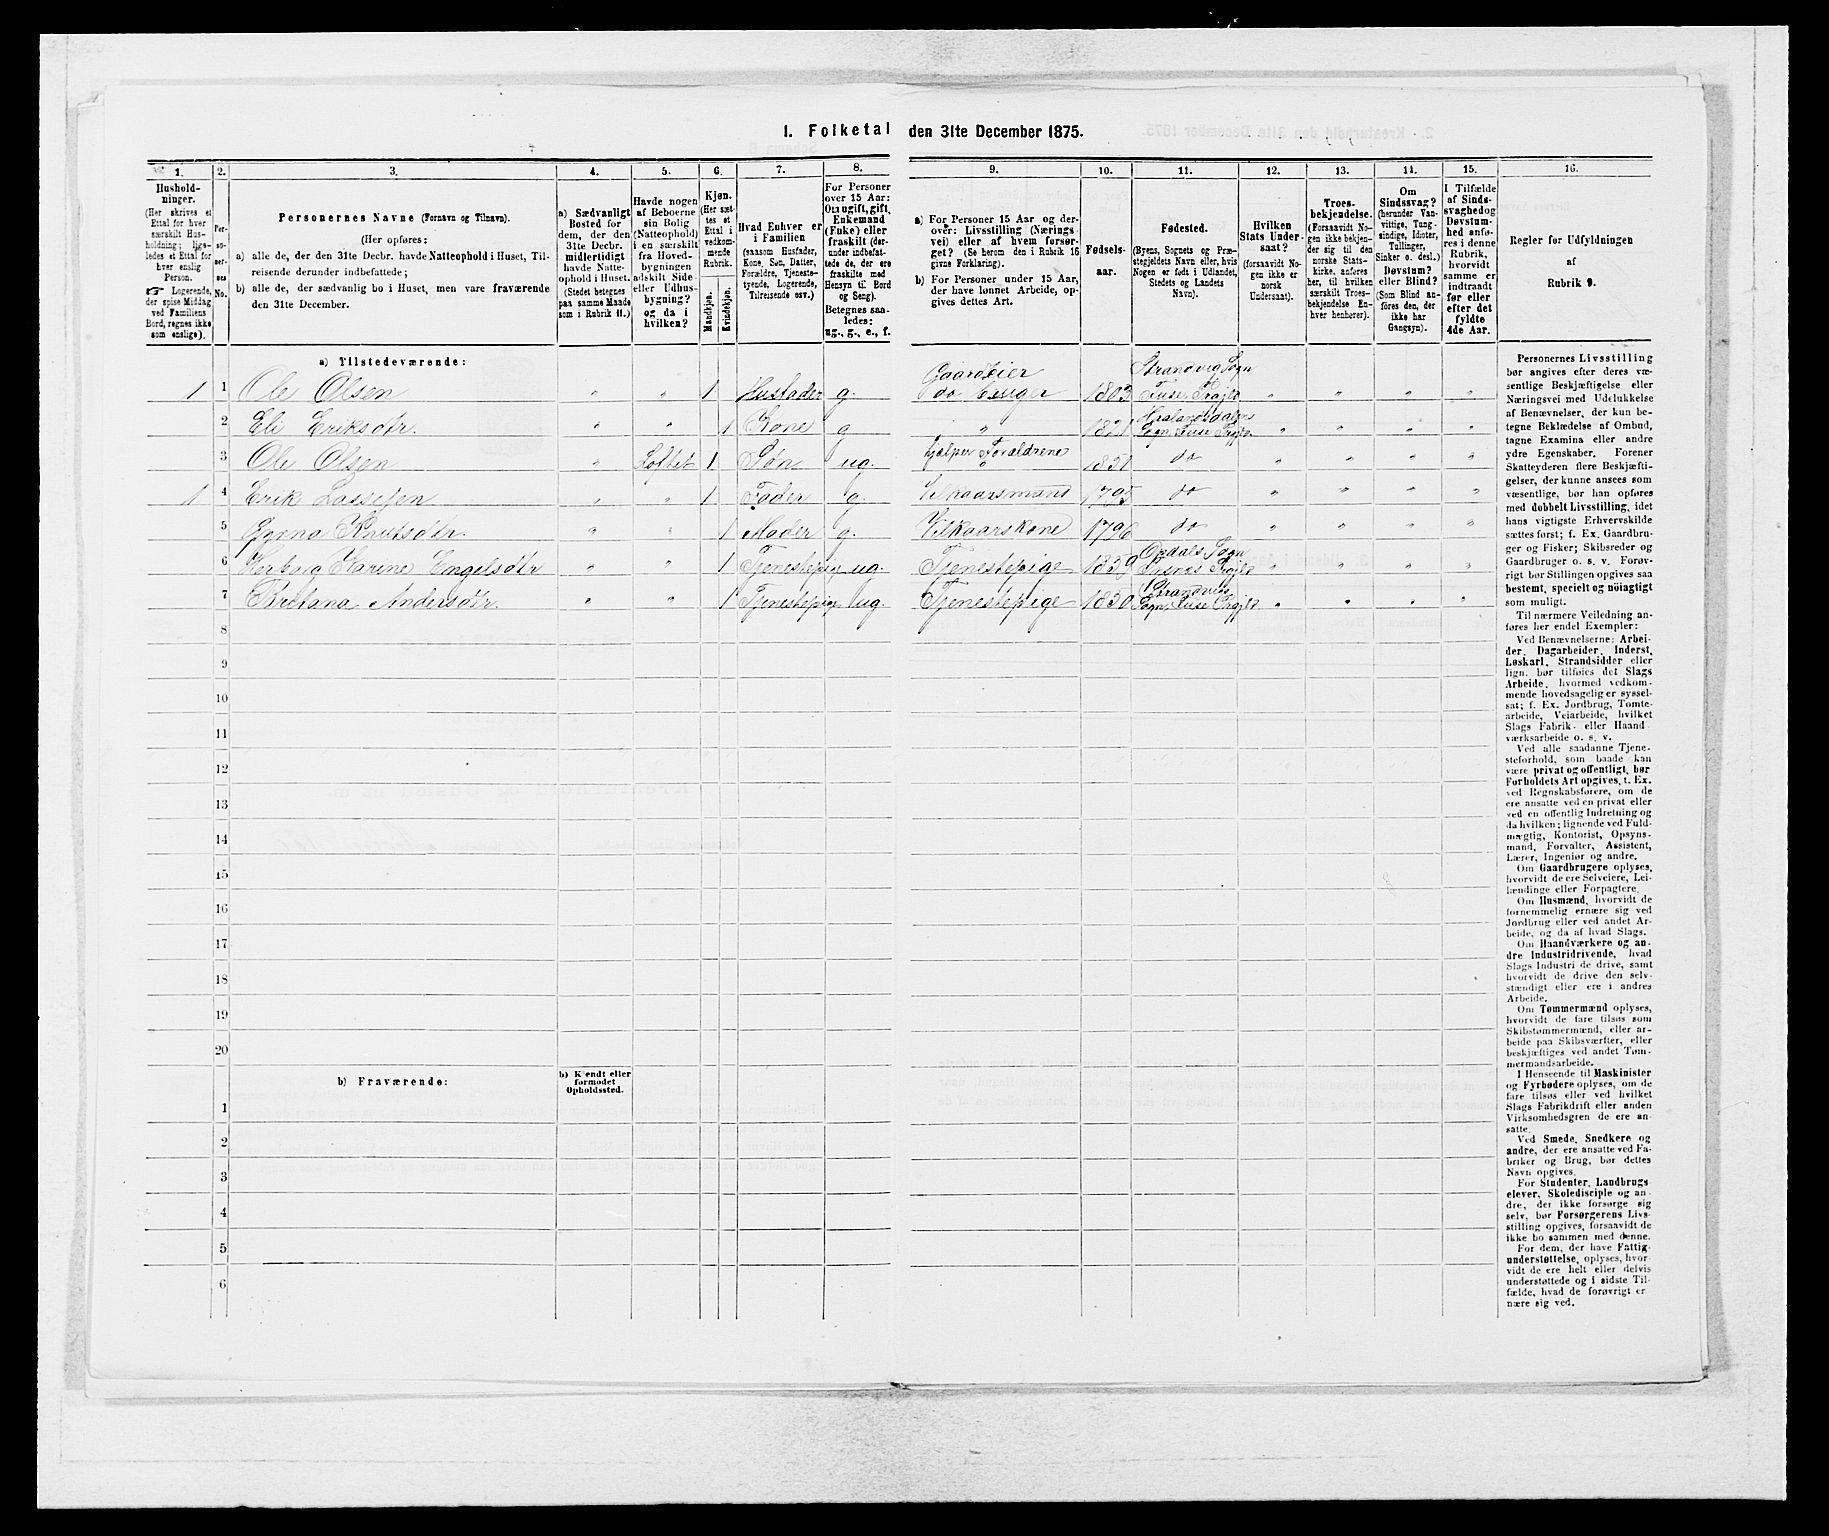 1. Folketal den 31te December 1875.
1. 2. 3. 4. 5. 6. 7. 8. 9. 10. 11. 12. 13. 14. 15. 16.
Hushold-
ninger.
(Her skrives et
Ettal for hver
særskilt Hus-
holdning; lige-
ledes et Ettal for
hver enslig
Person.
☞ Logerende,
der spise Middag
ved Familiens
Bord, regnes ikke
som enslige).
Per-
so-
ner-
nes
No.
Personernes Navne (Fornavn og Tilnavn).
(Her opføres:
a) alle de, der den 31te Decbr. havde Natteophold i Huset, Til-
reisende derunder indbefattede;
b) alle de, der sædvanlig bo i Huset, men vare fraværende
den 31te December.
a) Sædvanligt
Bosted for
dem, der den
31te Decbr.
midlertidigt
havde Natte-
ophold i Huset.
(Stedet betegnes
paa samme Maade
som i Rubrik 11.)
Havde nogen
af Beboerne
sin Bolig
(Natteophold)
i en særskilt
fra Hoved-
bygningen
adskilt Side-
eller Udhus-
bygning?
og da i
hvilken?
Kjøn.
(Her sæt-
tes et
Ettal i
vedkom-
mende
Rubrik.
Mandkjøn.
Kvindekjøn.
Hvad Enhver er
i Familien
(saasom Husfader,
Kone, Søn, Datter,
Forældre, Tjeneste-
tyende, Logerende,
Tilreisende osv.)
For Personer
over 15 Aar:
Om ugift, gift,
Enkemand
(Enke) eller
fraskilt (der-
under indbefat-
tede de, der ere
fraskilte med
Hensyn til Bord
og Seng).
Betegnes saa-
ledes:
ug., g., e., f.
a) For Personer 15 Aar og der-
over: Livsstilling (Nærings-
vei) eller af hvem forsør-
get? (Se herom den i Rubrik 16
givne Forklaring).
b) For Personer under 15 Aar,
der have lønnet Arbeide, op-
gives dettes Art.
Fødsels-
aar.
Fødested.
(Byens, Sognets og Præ-
stegjeldets Navn eller, hvis
Nogen er født i Udlandet,
Stedets og Landets
Navn).
Hvilken
Stats Under-
saat?
(forsaavidt No-
gen ikke er
norsk
Undersaat).
Troes-
bekjendelse.
(Forsaavidt No-
gen ikke bekjen-
der sig til den
norske Stats-
kirke, anføres
her, til hvilken
særskilt Troes-
bekjendelse En-
hver henhører).
Om
Sindssvag?
(herunder Van-
vittige, Tung-
sindige, Idioter,
Tullinger,
Sinker o. desl.)
Døvstum?
eller Blind?
(Som Blind an-
føres den, der
ikke har
Gangsyn).
I Tilfælde
af Sinds-
svaghed og
Døvstum-
hed anfø-
res i denne
Rubrik,
hvorvidt
samme er
indtraadt
før eller
efter det
fyldte
4de Aar.
Regler for Udfyldningen
af
Rubrik 9.
a) Tilstedeværende:
1 1 Ole Olsen " " 1 Husfader g. Gaardeier do bruger 1803 Strandvig Sogn Fuse Prgjld " " " "
2 Eli Eriksdtr. " " 1 Kone g " 1821 Haalandsdalens Sogn, Fuse Prgjld. " " " "
3 Ole Olsen " Loftet 1 Søn ug. hjælper Forældrene 1851 do " " " "
1 4 Erik Lassesen " " 1 Fader g. Vilkaarsmand 1795 do " " " "
5 Knutsdtr. " " 1 Moder g. Vilkaarskone 1796 do " " " "
6 Herborg Karine Engelsdtr " " 1 Tjenestepige ug. Tjenestepige 1859 Opdals Sogn Prgjld " " " "
7 Andersdtr. " " 1 Tjenestepige ug. Tjenestepige 1830 Strandvig Sogn, Fuse Prgjld. " " " "
8
9
10
11
12
13
14
15
16
17
18
19
20
b) Fraværende:
b) Kjendt eller
formodet
Opholdssted.
1
2
3
4
5
6
Personernes Livsstilling
bør angives efter deres væ-
sentlige Beskjæftigelse eller
Næringsvei med Udelukkelse
af Benævnelser, der kun be-
tegne Beklædelse af Ombud,
tagne Examina eller andre
ydre Egenskaber. Forener
Skatteyderen flere Beskjæfti-
gelser, der kunne ansees som
væsentlige, bør han opføres
med dobbelt Livsstilling, idet
hans vigtigste Erhvervskilde
sættes først; f. Ex. Gaardbru-
ger og Fisker; Skibsreder og
Gaardbruger o. s. v. Forøv-
rigt bør Stillingen opgives saa
bestemt, specielt og nöiagtigt
som muligt.
Til nærmere Veiledning an-
føres her endel Exempler:
Ved Benævnelserne: Arbei-
der, Dagarbeider, Inderst,
Løskarl, Strandsidder eller
lign. bør tilføies det Slags
Arbeide, hvormed vedkom-
mende hovedsagelig er syssel-
sat; f. Ex. Jordbrug, Tomte-
arbeide, Veiarbeide, hvilket
Slags Fabrik- eller Haand-
værksarbeide o. s. v.
Ved alle saadanne Tjene-
steforhold, som baade kan
være privat og offentligt, bør
Forholdets Art opgives, t. Ex.
ved Regnskabsførere, om de
ere ansatte ved en privat eller
ved en offentlig Indretning og
da hvilken; lignende ved Fuld-
mægtig, Kontorist, Opsyns-
mand, Forvalter, Assistent,
Lærer, Ingeniør og andre.
Om Gaardbrugere oplyses,
hvorvidt de ere Selveiere, Lei-
lændinge eller Forpagtere.
Om Husmænd, hvorvidt de
fornemmelig ernære sig ved
Jordbrug eller ved andet Ar-
beide, og da af hvad Slags.
Om Haandværkere og an-
dre Industridrivende, hvad
Slags Industri de drive, samt
hvorvidt de drive den selv-
stændigt eller ere i andres
Arbeide.
Om Tømmermænd oplyses,
hvorvidt de fare tilsøs som
Skibstømmermænd, eller ar-
beide paa Skibsværfter, eller
beskjæftiges ved andet Tøm-
mermandsarbeide.
I Henseende til Maskinister
og Fyrbødere oplyses, om de
fare tilsøs eller ved hvilket
Slags Fabrikdrift eller anden
Virksomhedsgren de ere an-
satte.
Ved Smede, Snedkere og
andre, der ere ansatte ved Fa-
briker og Brug, bør dettes
Navn opgives.
For Studenter, Landbrugs-
elever, Skoledisciple og an-
dre, der ikke forsørge sig
selv, bør Forsørgerens Livs-
stilling opgives, forsaavidt de
ikke bo sammen med denne.
For dem, der have Fattig-
understøttelse, oplyses, hvor-
vidt de ere helt eller delvis
understøttede og i sidste Til-
fælde, hvad de forøvrigt er
nære sig ved.